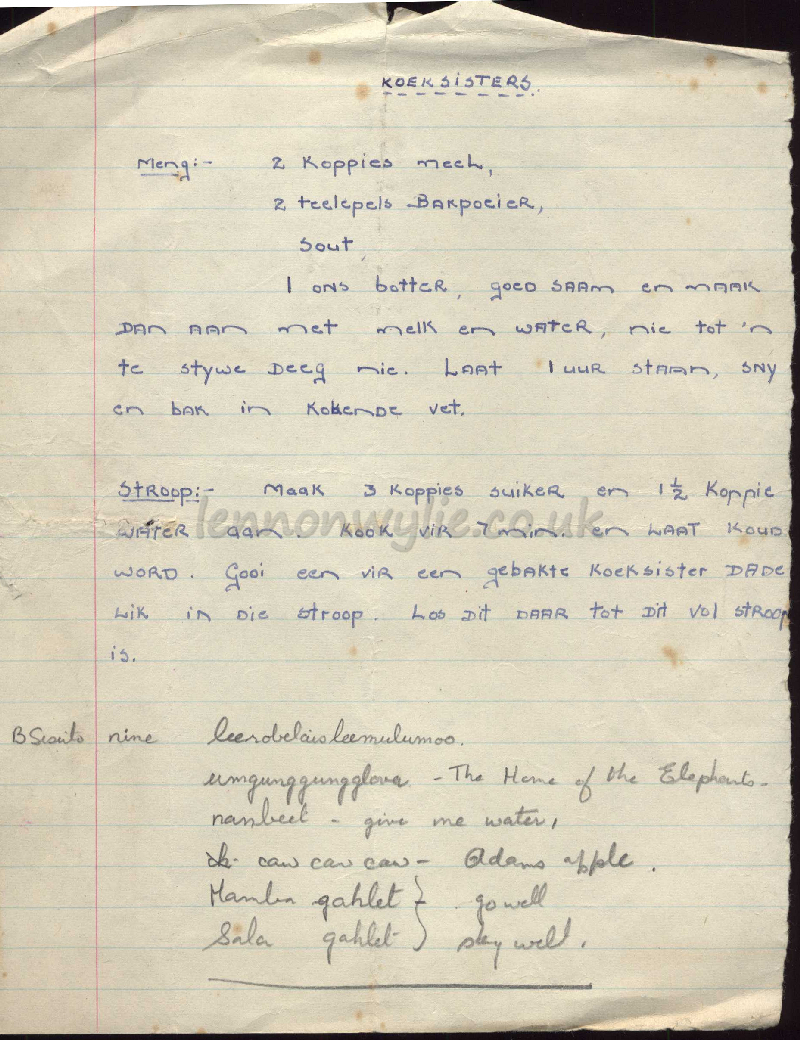 KOEKSISTERS.
Meng:- 2 Koppies meel,
2 teelepels Bakpoeier,
Sout,
1 ons botter, goed saam en maak
dan aan met melk en water, nie tot 'n
te stywe deeg nie. Laat 1 uur staan, sny
en bak in kokende vet.
Stroop:- Maak 3 koppies suiker en 1½ Koppie
lennonwylie.co.uk
water aan. Kook vir 7 min. en laat koud
word. Gooi een vir een gebakte koeksister dade
lik in die stroop. Los dit daar tot dit vol stroop
is.
nine leerobelaisleemulumoo.
umgunggungglova - The Home of the Elephants-
nambeet - give me water,
caw caw caw - Adams apple.
Hamba gahlet } go well
Sala gahlet } stay well.